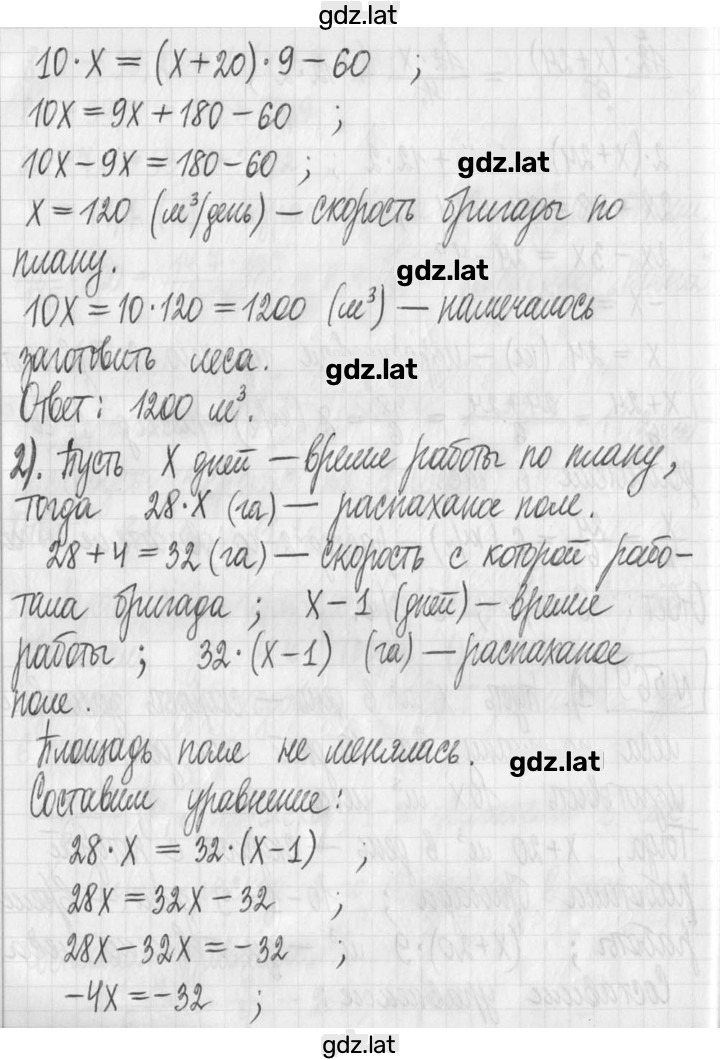 gdz.lat
10·x = (x+20)·9-60 ;
10x = 9x+180-60 ;
10x-9x = 180-60 ;
gdz.lat
x = 120 (м³/день) — скорость бригады по
плану.
gdz.lat
10x = 10·120 = 1200 (м³) — намечалось
заготовить леса.
gdz.lat
Ответ: 1200 м³.
2). Пусть x дней — время работы по плану,
тогда 28·x (га) — распаханое поле.
28+4 = 32 (га) — скорость с которой рабо-
тала бригада ; x-1 (дней) — время
работы ; 32·(x-1) (га) — распаханое
поле.
Площадь поле не менялась.
gdz.lat
Составим уравнение:
28·x = 32·(x-1) ;
28x = 32x-32 ;
28x-32x = -32 ;
-4x = -32 ;
gdz.lat